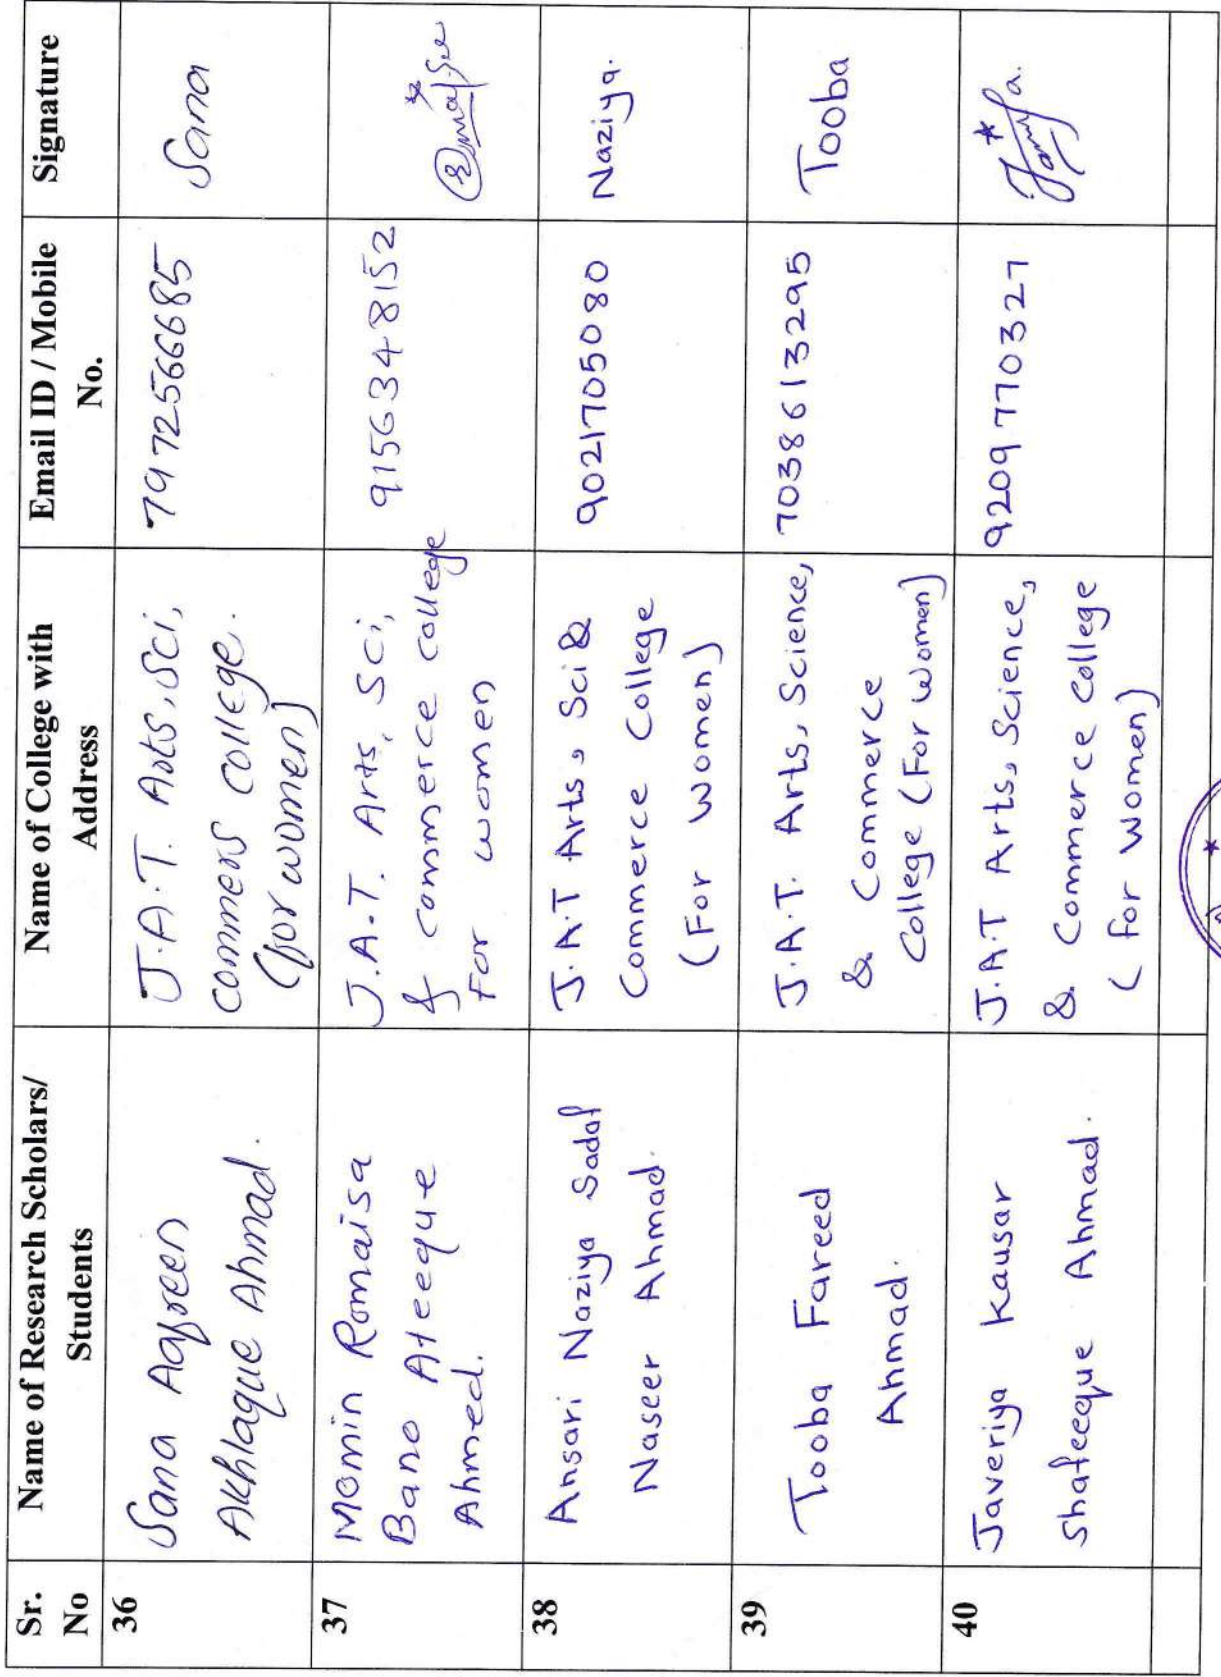 Sr. No
Name of Research Scholars/ Students
Name of College with Address
Email ID / Mobile No.
Signature
36
Sana Aafreen
Akhlaque Ahmad.
J.A.T. Arts, Sci,
commers college.
(for women)
7972566685
Sana
37
Momin Romaisa
Bano Ateeque
Ahmed.
J.A.T. Arts, Sci,
& commerce college
For women
9156348152
38
Ansari Naziya Sadaf
Naseer Ahmad.
J.A.T Arts, Sci &
Commerce College
(For women)
9021705080
Naziya.
39
Tooba Fareed
Ahmad.
J.A.T. Arts, Science,
& Commerce
College (For women)
7038613295
Tooba
40
Javeriya Kausar
Shafeeque Ahmad.
J.A.T Arts, Science,
& Commerce college
(for women)
9209770327